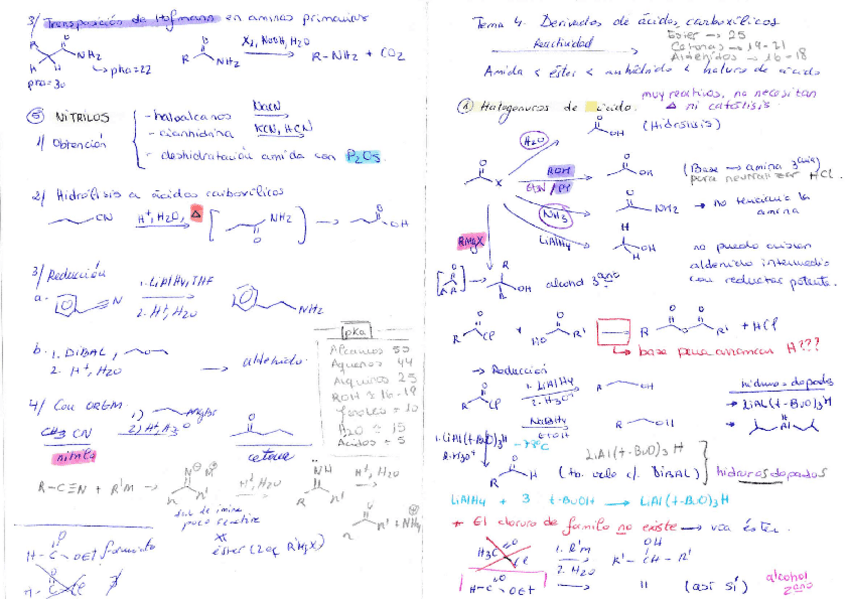 3/ Transposición de Hofmann en aminas primarias
NH2
pka=22
R NH2 X2, NaOH, H2O R-NH2 + CO2
H H
pka=30
⑤ NITRILOS
1/ Obtención
- haloalcanos NaCN
- cianhidrina KCN, HCN
- deshidratación amida con P2O5
2/ Hidrólisis a ácidos carboxílicos
CN H+, H2O, Δ NH2 O O OH
3/ Reducción
a. N 1. LiAlH4, THF
2. H+, H2O NH2
b. 1. DIBAL,
2. H+, H2O
aldehido
pka
Alcanos 50
Aquenos 44
Alquinos 25
ROH ≈ 16-18
fenoles ≈ 10
H2O ≈ 15
Acidos ≈ 5
4/ Con ORGM. 1) MgBr
CH3 CN 2) H+, H2O
nitrilo cetona
R-C≡N + R'M H+, H2O H+, H2O
sal de imina
poco reactiva
+ NH4
éster (2eq R'MgX)
H-C-OEt formiato
Tema 4. Derivados de ácidos carboxílicos
Ester → 25
Reactividad
Cetonas → 19-21
Aldehidos → 16-18
Amida < éster < anhídrido < haluro de ácido
① Halogenuros de ácido.
muy reactivos, no necesitan
Δ ni catálisis
H2O OH (Hidrólisis)
ROH
Et3N / Py OR (Base → amina 3aria
para neutralizar HCl.
X
NH3 NH2 → no tenciona la
amina
RMgX LiAlH4 H OH
no puedo aislar
aldehido intermedio
con reductor potente.
R R OH alcohol 3ario
R Cl + HO R' R O R' + HCl
↳ base para arrancar H???
→ Reducción
R Cl 1. LiAlH4
2. H3O+ R OH
NaBH4
EtOH R OH
hidruros dopados
→ LiAl(t-BuO)3H
1. LiAl(t-BuO)3H -78ºC
2. H3O+
R H
LiAl(t-BuO)3H
(tb. vale c/ DIBAL) hidruros dopados
LiAlH4 + 3 t-BuOH → LiAl(t-BuO)3H
* El cloruro de formilo no existe → usa éster.
H3C Cl 1. R'M
2. H2O
OH
R'-CH-R'
H-C OEt → 11 (así sí) alcohol
2ario